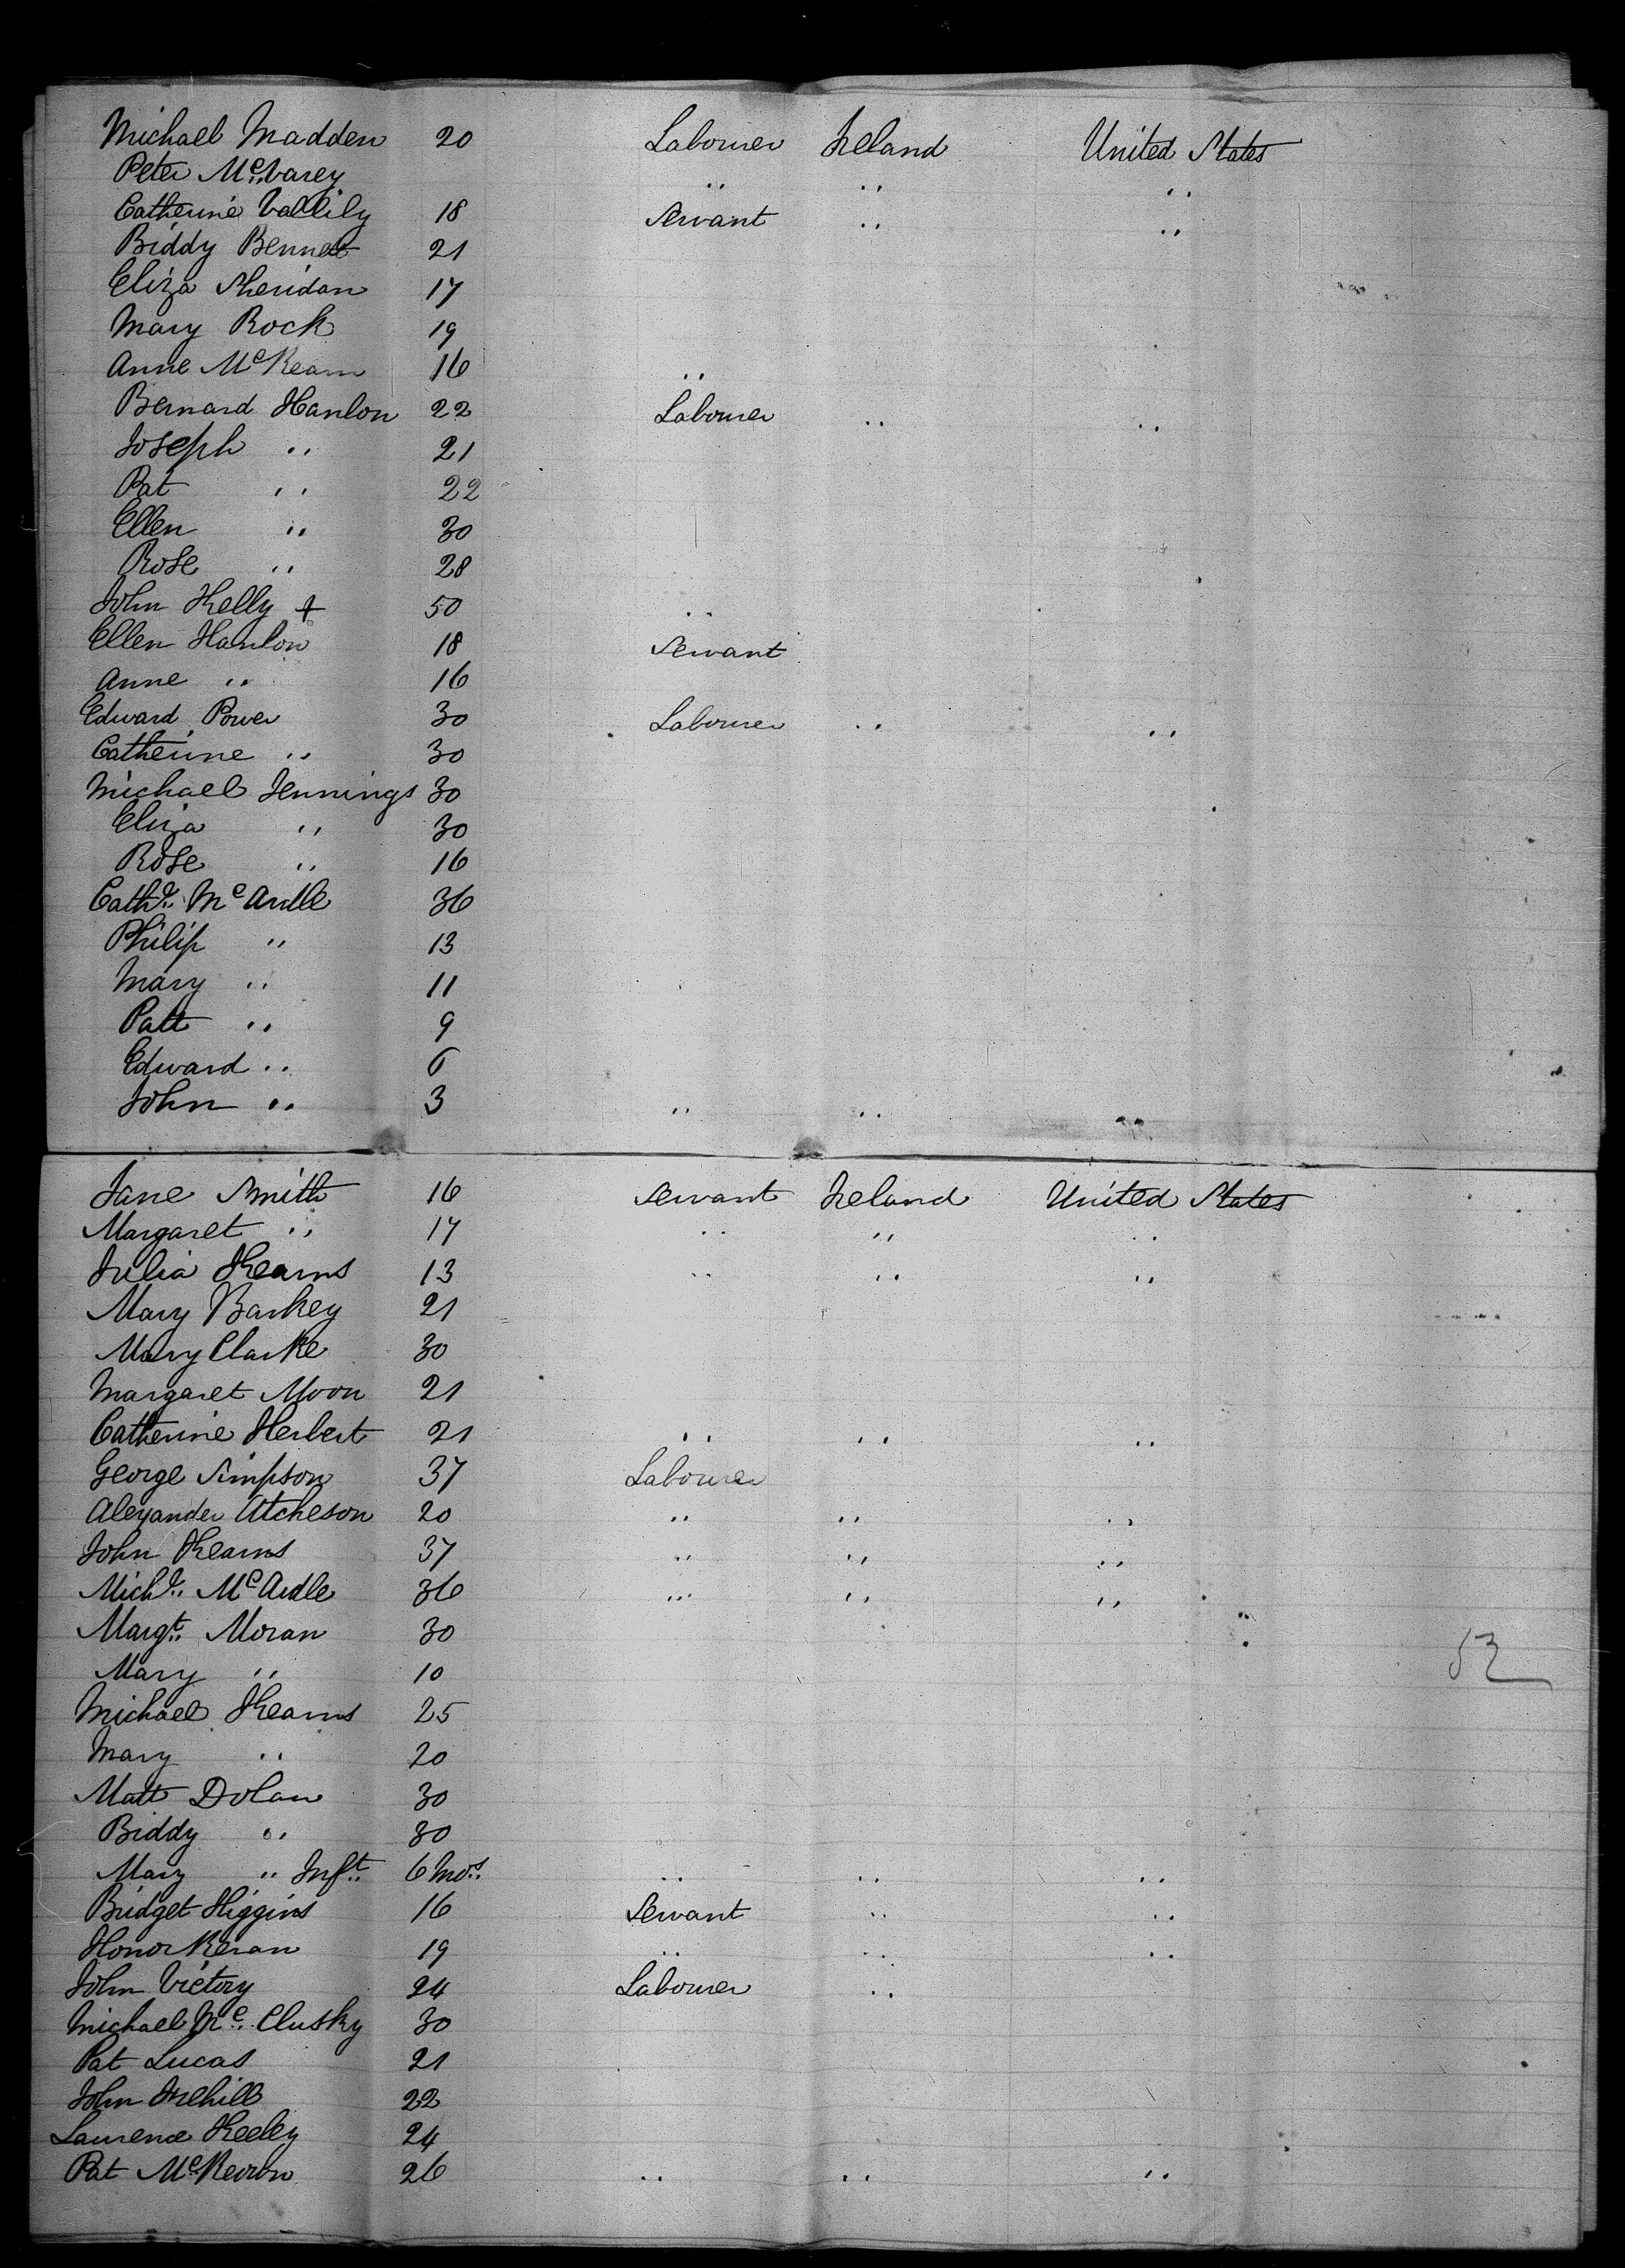 Michael Madden 20 Labourer Ireland United States
Peter Mc. Varey " " "
Catherine Vallily 18 Servant " "
Biddy Bennet 21
Eliza Sheridan 17
Mary Rock 19
Anne McKearn 16 "
Bernard Hanlon 22 Labourer " "
Joseph " 21
Pat " 22
Ellen " 30
Rose " 28
John Kelly + 50 "
Ellen Hanlon 18 Servant
Anne " 16
Edward Power 30 Labourer " "
Catherine " 30
Michael Jennings 30
Eliza " 30
Rose " 16
Cathe. McArdle 36
Philip " 13
Mary " 11
Patt " 9
Edward " 6
John " 3 " " "
Jane Smith 16 Servant Ireland United States
Margaret " 17 " " "
Julia Kearns 13 " " "
Mary Barkey 21
Mary Clarke 30
Margaret Moon 21
Catherine Herbert 21 " " "
George Simpson 37 Labourer
Alexander Atcheson 20 " " "
John Kearns 37 " " "
Michl. McArdle 36 " " "
Margt. Moran 30
Mary " 10
Michael Kearns 25
Mary " 20
Matt Dolan 30
Biddy " 30
Mary " Inft. 6 Mos. " " "
Bridget Higgins 16 Servant " "
Honor Keran 19 " " "
John Victory 24 Labourer "
Michael Mc. Clusky 30
Pat Lucas 21
John 22
Laurence Keeley 24
Pat McKeiron 26 " " "